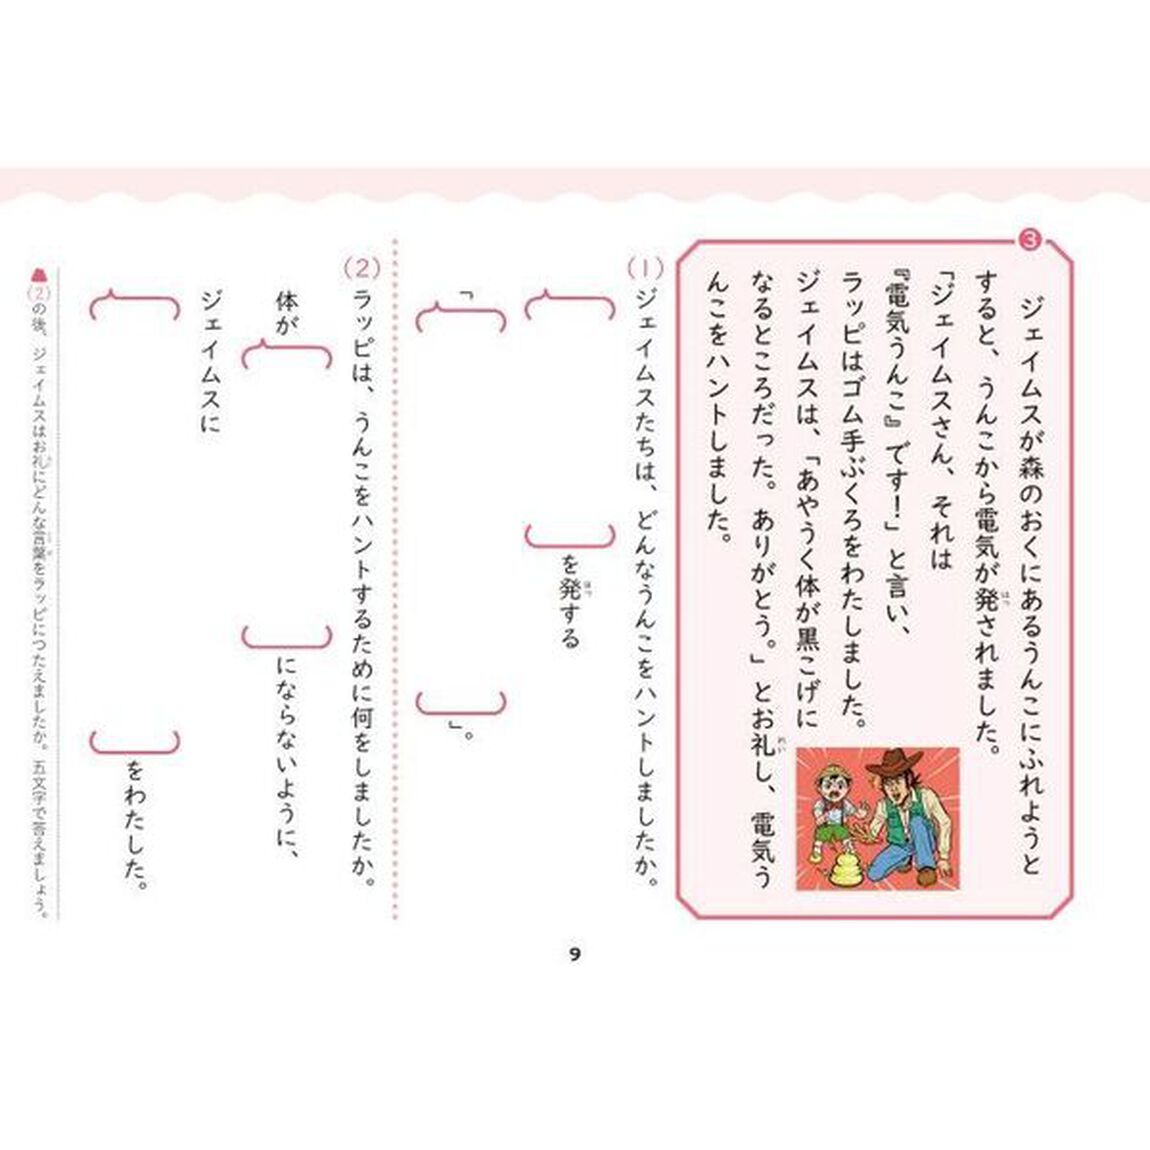 ③
ジェイムスが森のおくにあるうんこにふれようと
すると、うんこから電気が発されました。
「ジェイムスさん、それは
『電気うんこ』です！」と言い、
ラッピはゴム手ぶくろをわたしました。
ジェイムスは、「あやうく体が黒こげに
なるところだった。ありがとう。」とお礼し、電気う
んこをハントしました。
(1)ジェイムスたちは、どんなうんこをハントしましたか。
を発する
「
」。
(2)ラッピは、うんこをハントするために何をしましたか。
体が
にならないように、
ジェイムスに
をわたした。
(2)の後、ジェイムスはお礼にどんな言葉をラッピにつたえましたか。五文字で答えましょう。
9